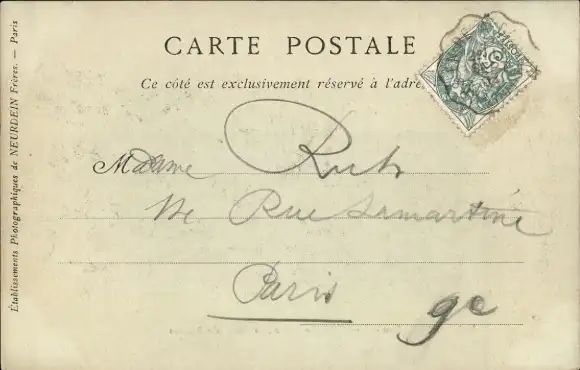 CARTE POSTALE
Ce côté est exclusivement réservé à l'adre
Madame
Rue Lamartine
Paris 9e
Établissements Photographiques de NEURDEIN Frères. — Paris